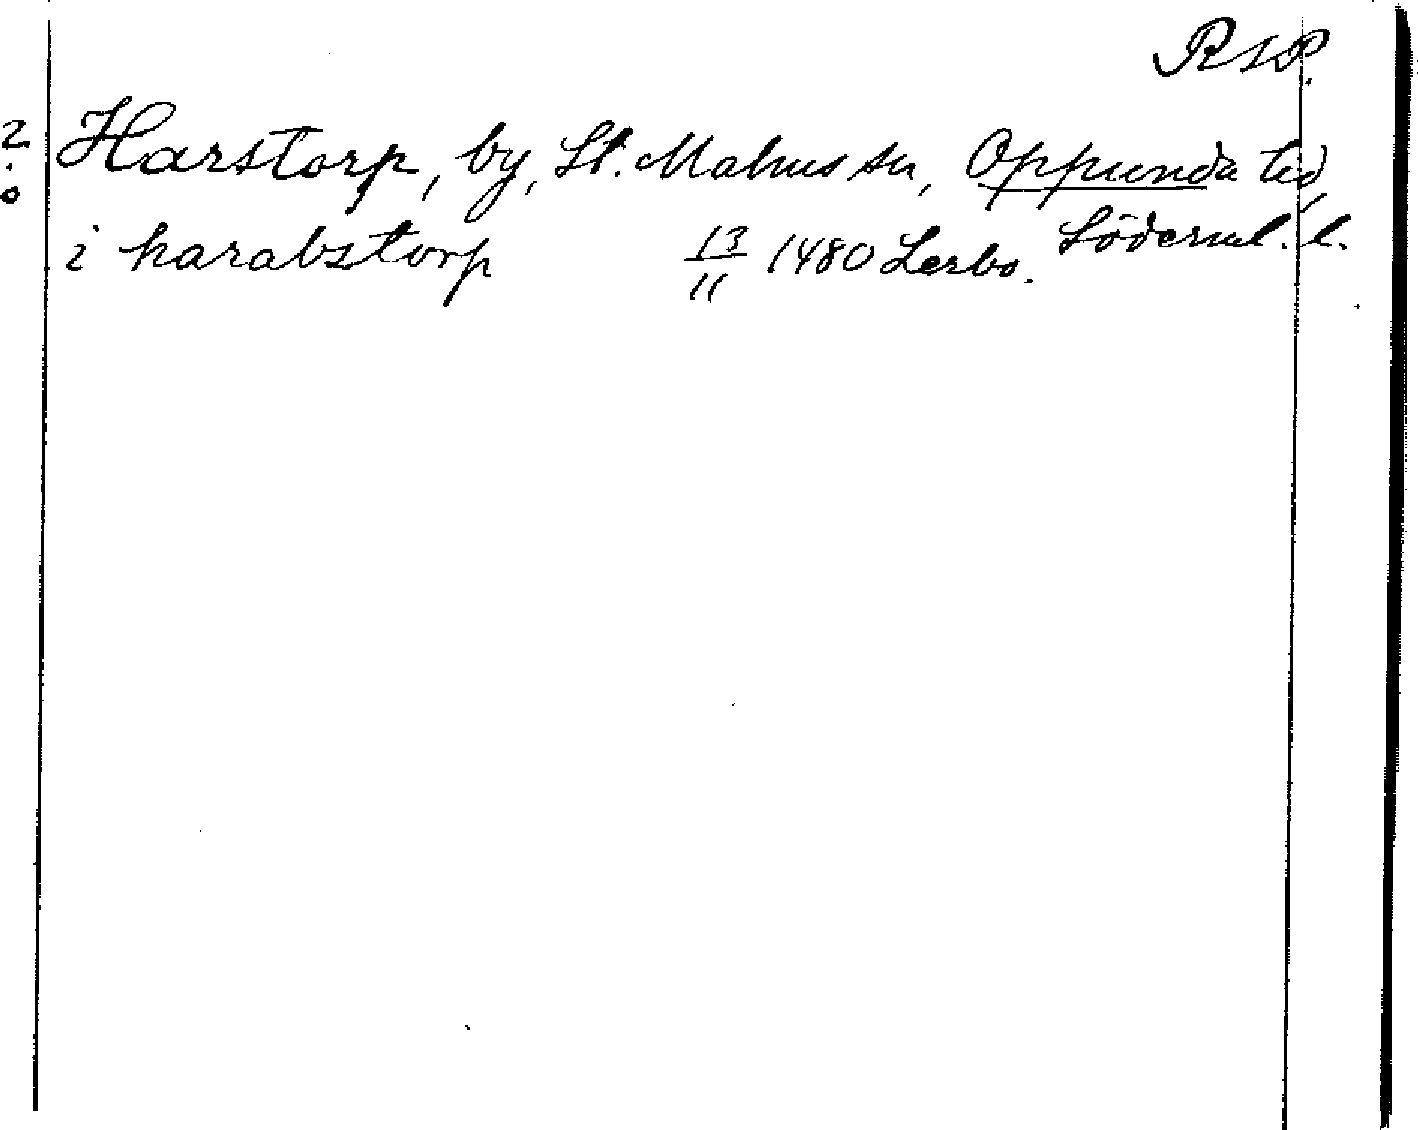 RAP.
Harstorp, by, St. Malms sn, Oppunda hd,
Söderml. l.
i harabstorp 13/11 1480 Lerbo.